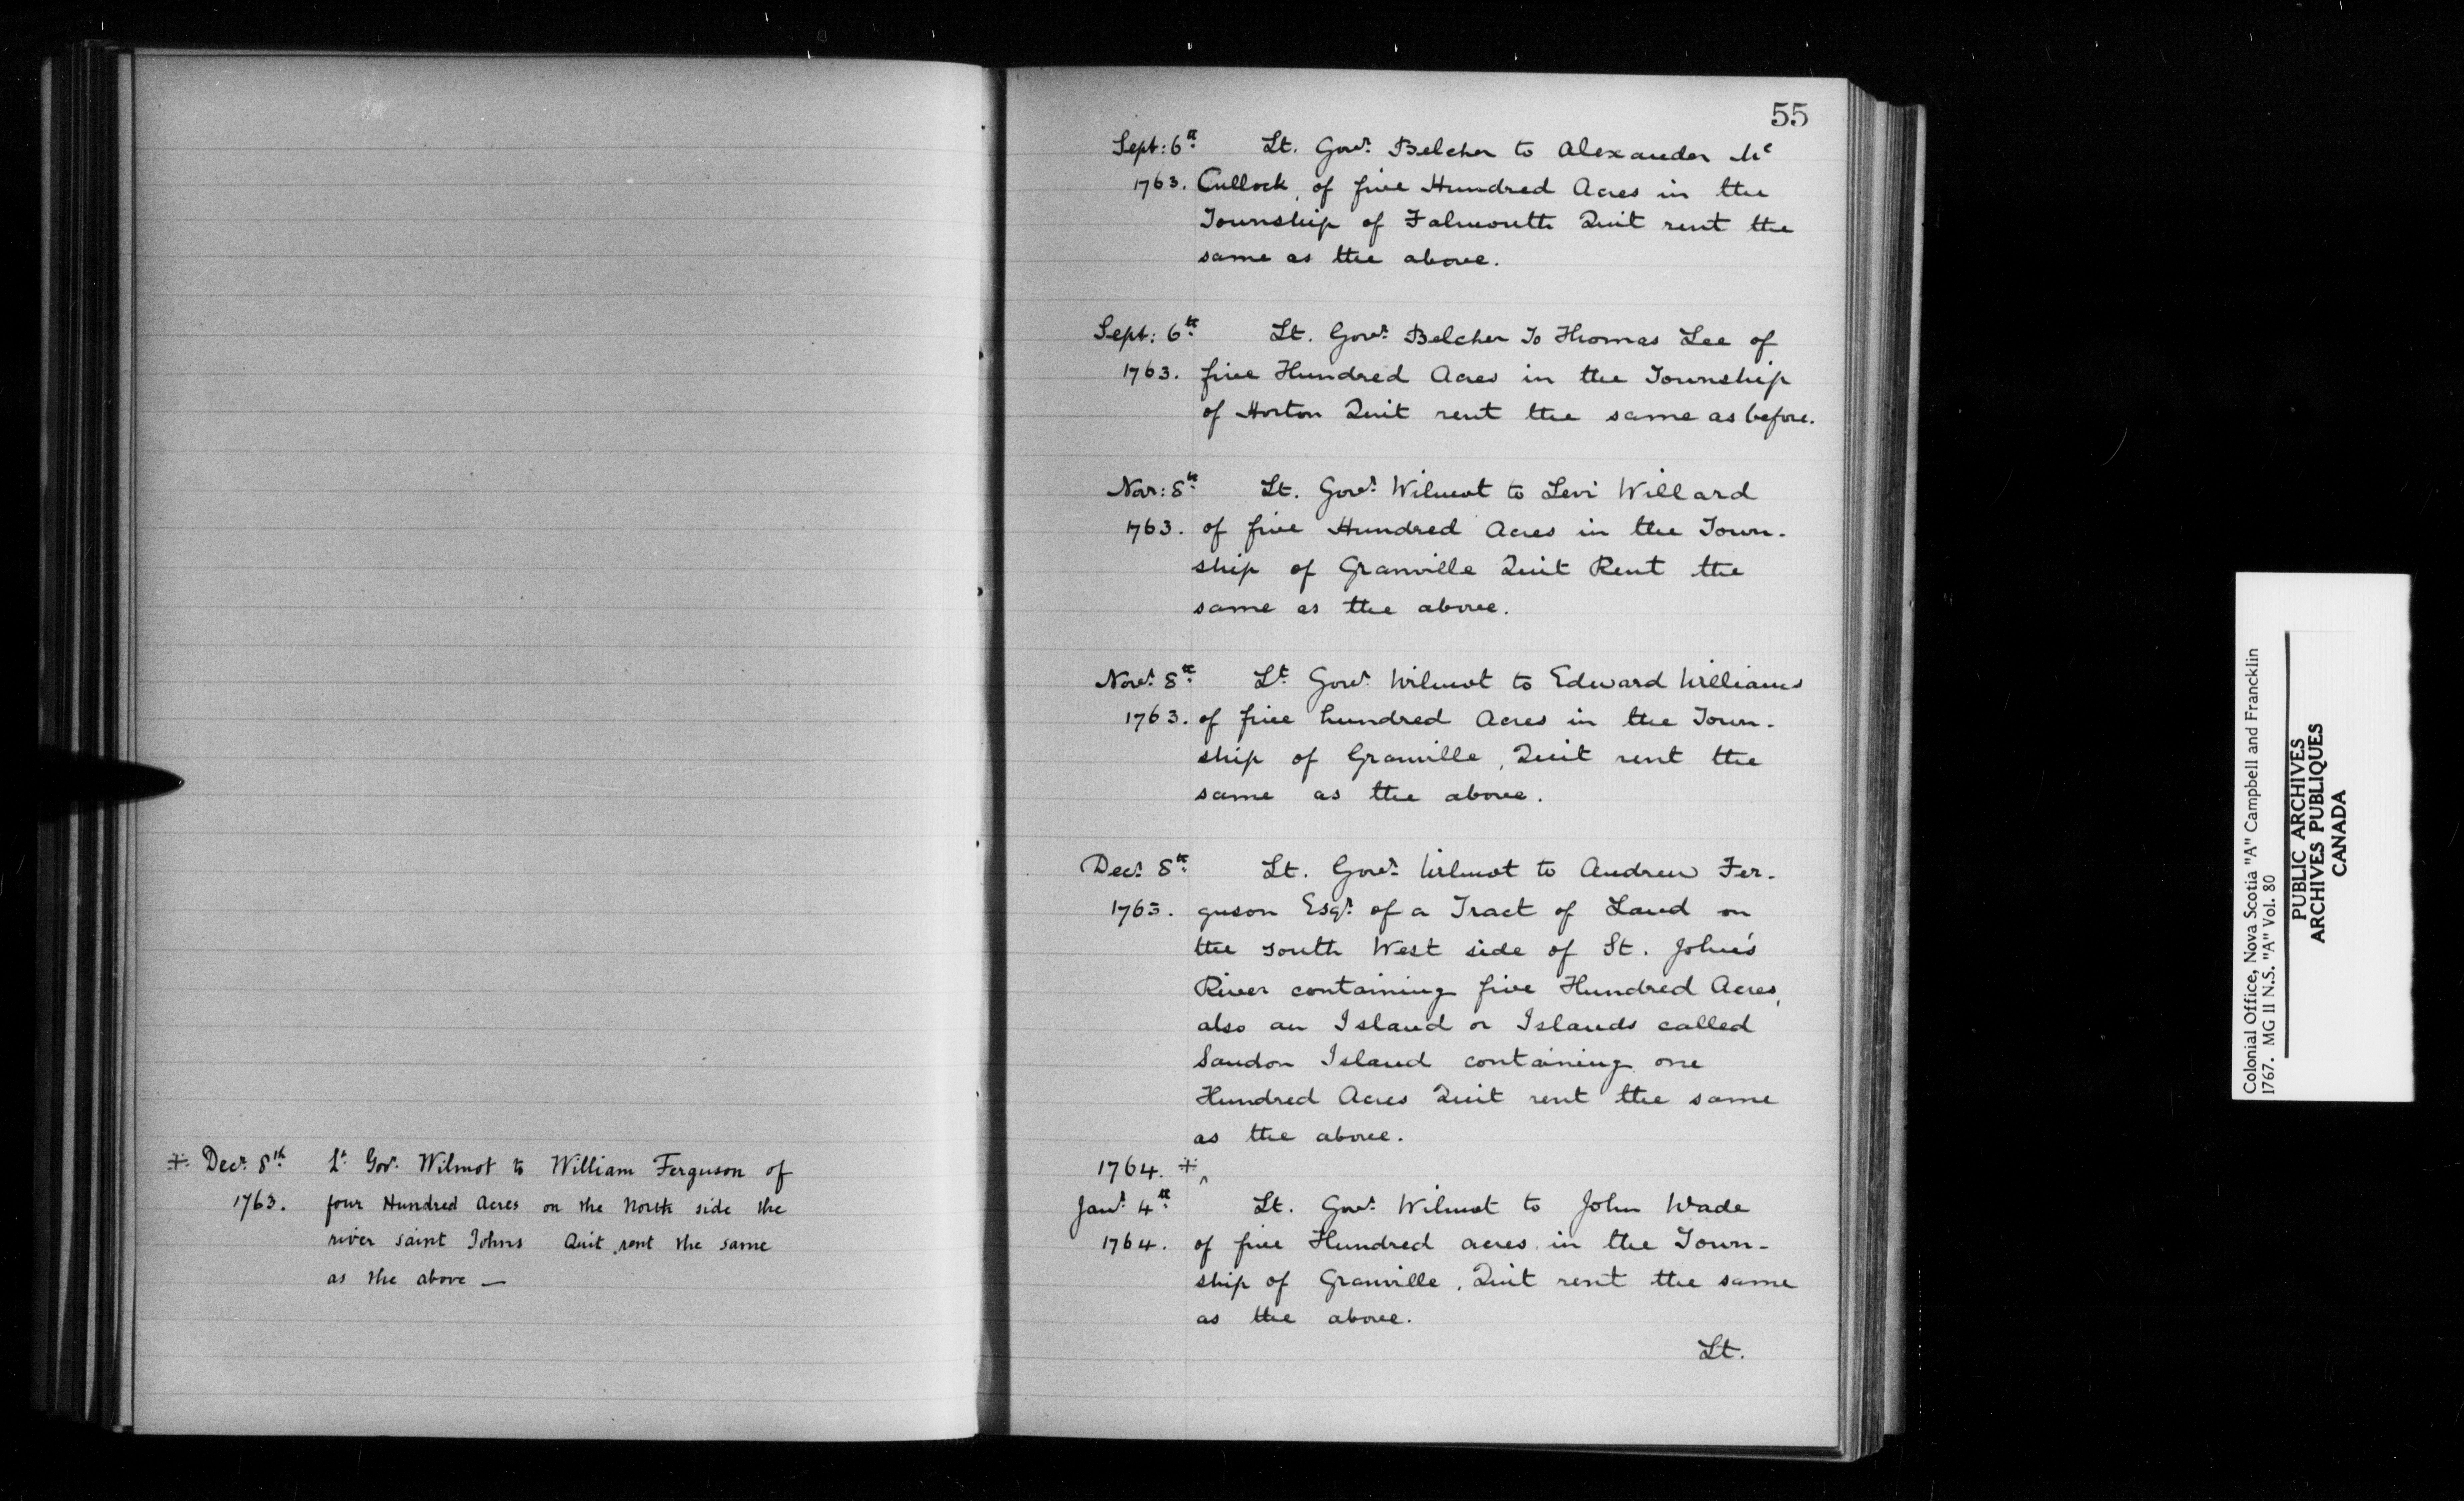 ∻ Decr 8th Lt Govr Wilmot to William Ferguson of
1763. four Hundred Acres on the North side the
river saint Johns Quit rent the same
as the above —
55
Sept: 6th Lt. Govr Belcher to Alexander Mc
1763. Cullock, of five Hundred Acres in the
Township of Falmouth Quit rent the
same as the above.
Sept: 6th Lt. Govr Belcher To Thomas Lee of
1763. five Hundred Acres in the Township
of Horton Quit rent the same as before.
Nov: 8th Lt. Govr Wilmot to Levi Willard
1763. of five Hundred Acres in the Town-
ship of Granville Quit Rent the
same as the above.
Novr 8th Lt Govr Wilmot to Edward Williams
1763. of five hundred Acres in the Town-
ship of Granville, Quit rent the
same as the above.
Decr 8th Lt. Govr Wilmot to Andrew Fer-
1763. guson Esqr of a Tract of Land on
the south West side of St. John's
River containing five Hundred Acres,
also an Island or Islands called
Sandon Island containing one
Hundred Acres Quit rent the same
as the above.
1764. ∻ ^
Janr 4th Lt. Govr Wilmot to John Wade
1764. of five Hundred acres in the Town-
ship of Granville, Quit rent the same
as the above.
Lt.
Colonial Office, Nova Scotia "A" Campbell and Francklin
1767. MG II N.S. "A" Vol. 80
PUBLIC ARCHIVES
ARCHIVES PUBLIQUES
CANADA